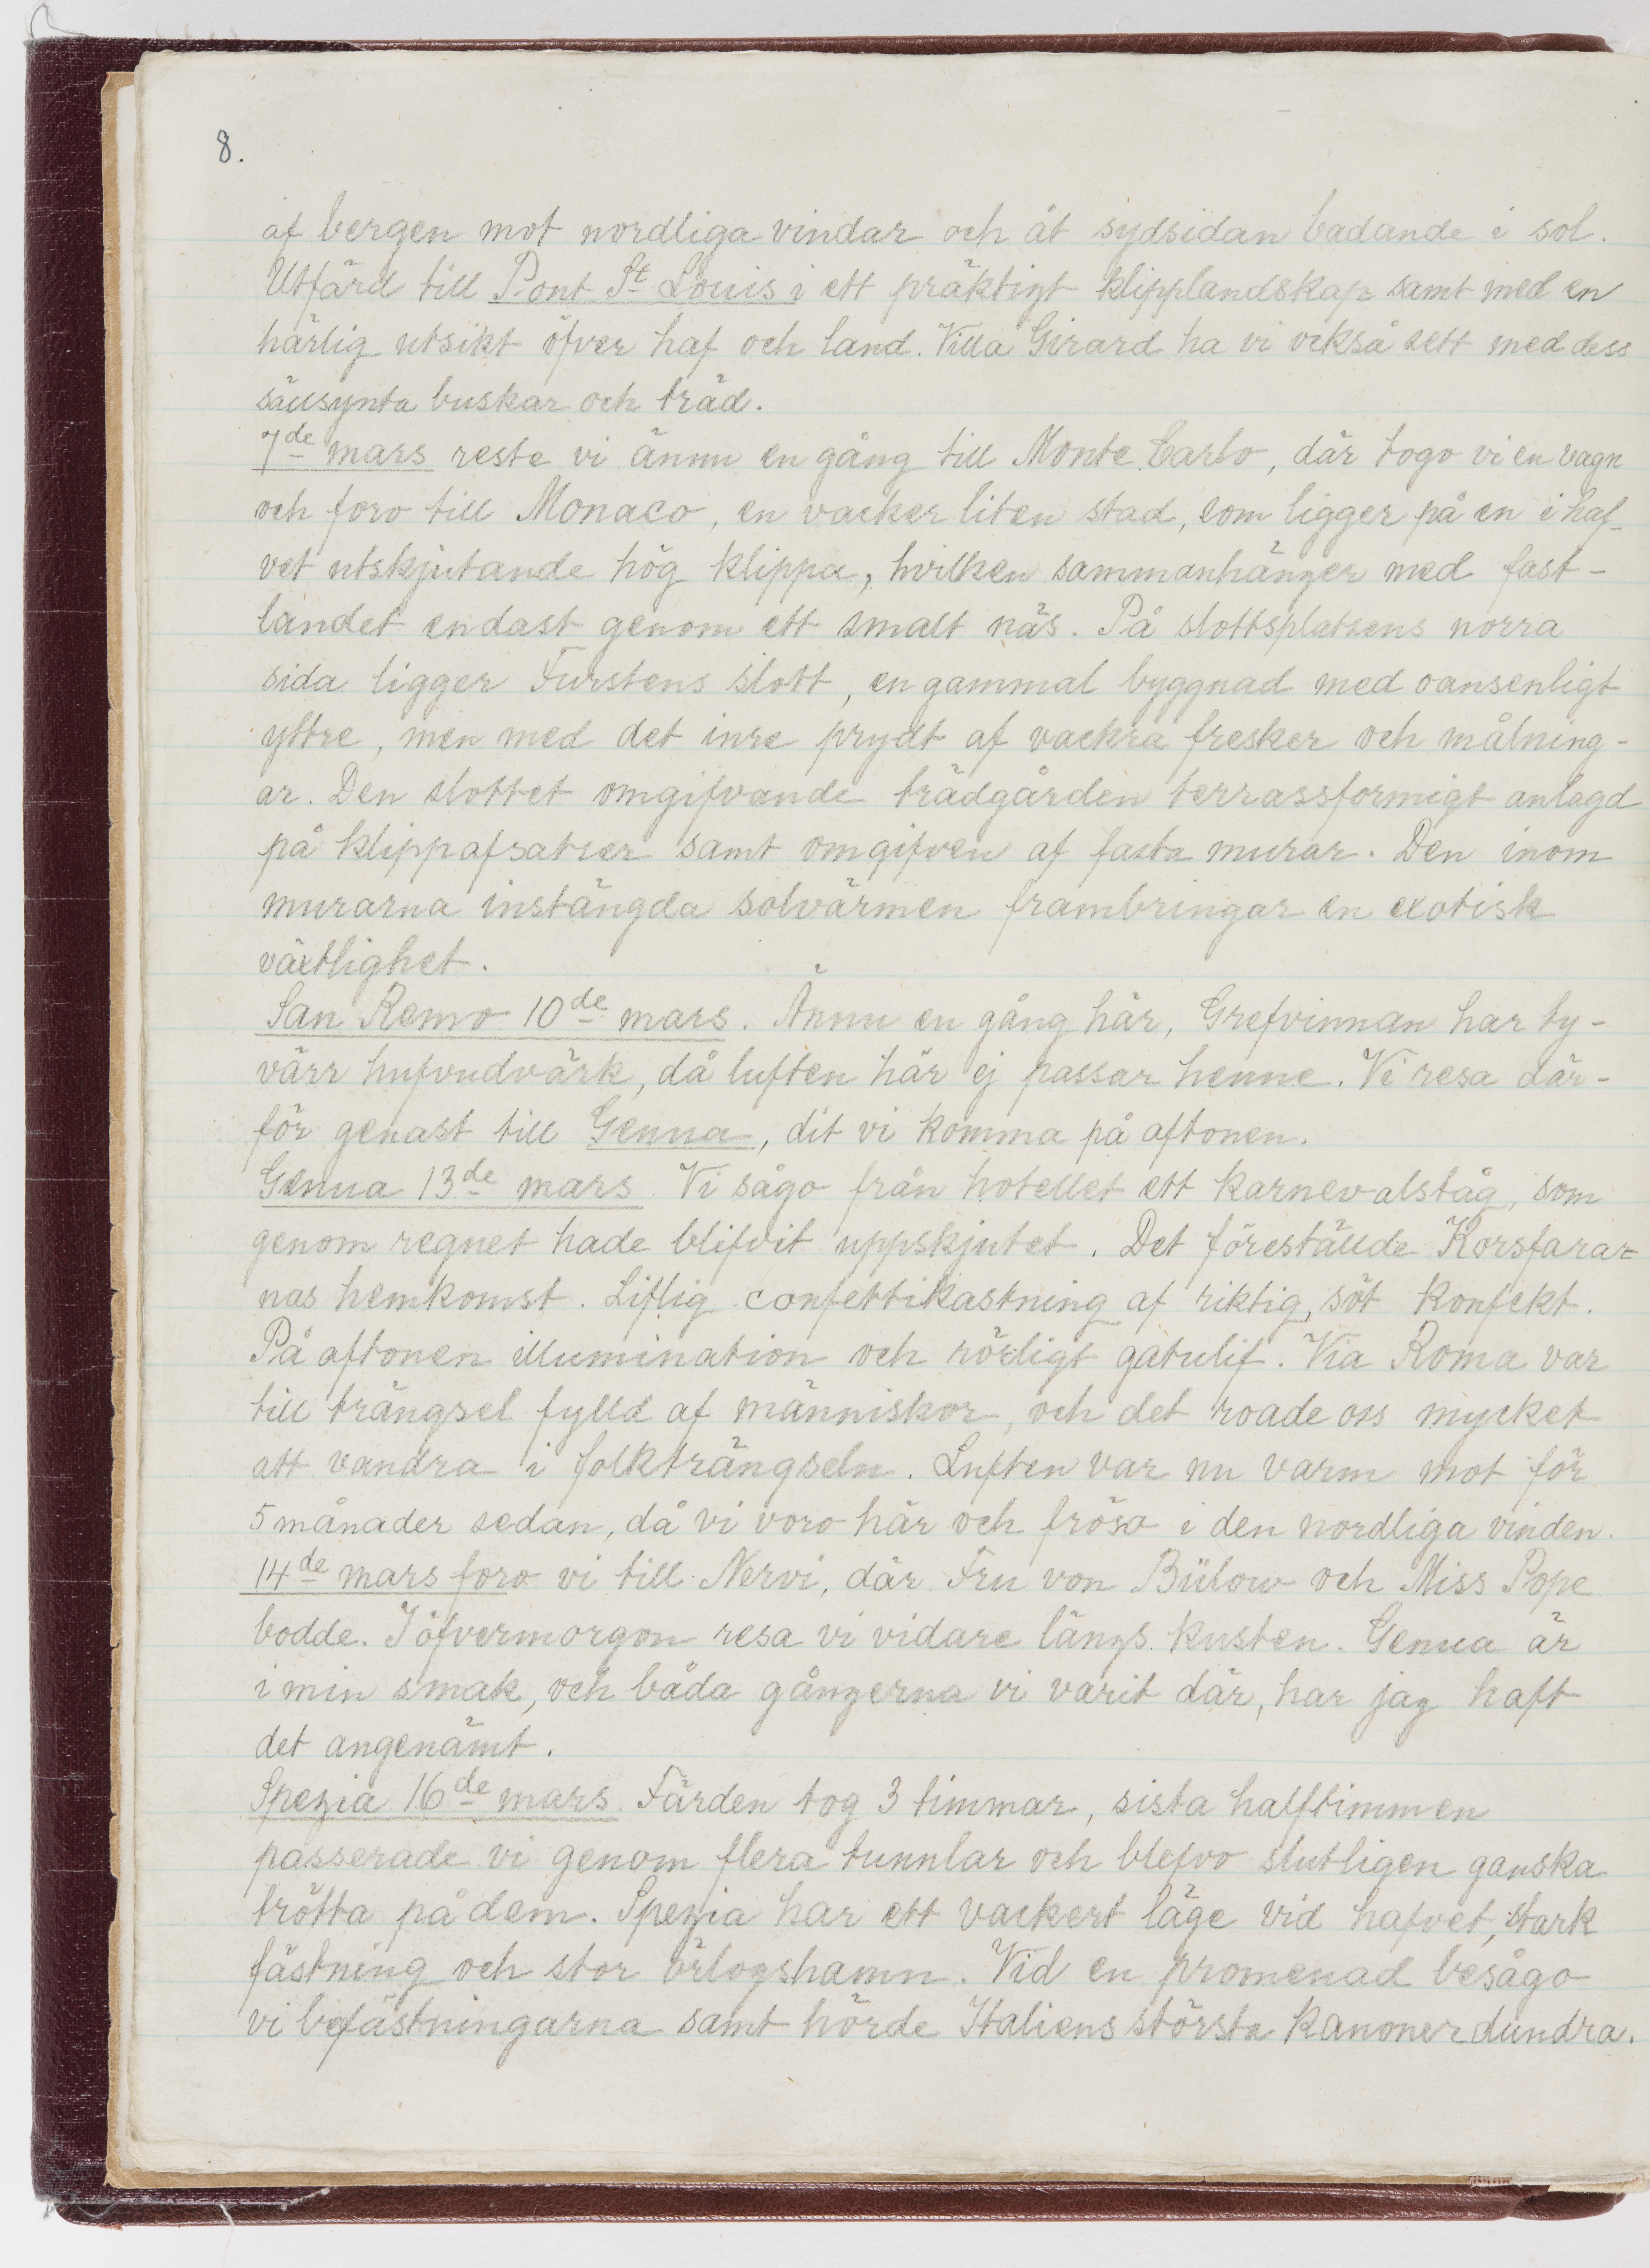 8.
af bergen mot nordliga vindar och åt sydsidan badande i sol.
Utfärd till Pont St Louis i ett präktigt klipplandskap samt med en
härlig utsikt öfver haf och land. Villa Girard ha vi också sett med dess
sällsynta buskar och träd.
7de mars reste vi ännu en gång till Monte Carlo, där togo vi en vagn
och foro till Monaco, en vacker liten stad, som ligger på en i haf-
vet utskjutande hög klippa, hvilken sammanhänger med fast-
landet endast genom ett smalt näs. På slottsplatsens norra
sida ligger Furstens slott, en gammal byggnad med oansenligt
yttre, men med det inre prydt af vackra fresker och målning-
ar. Den slottet omgifvande trädgården terrassformigt anlagd
på klippafsatser samt omgifven af fasta murar. Den inom
murarna instängda solvärmen frambringar en exotisk
växtlighet.
San Remo 10de mars. Ännu en gång här, Grefvinnan har ty-
värr hufvudvärk, då luften här ej passar henne. Vi resa där-
för genast till Genua, dit vi komma på aftonen.
Genua 13de mars. Vi sågo från hotellet ett karnevalståg, som
genom regnet hade blifvit uppskjutet. Det föreställde Korsfarar-
nas hemkomst. Liflig confettikastning af riktig, söt konfekt.
På aftonen illumination och rörligt gatulif. Via Roma var
till trängsel fylld af människor, och det roade oss mycket
att vandra i folkträngseln. Luften var nu varm mot för
5 månader sedan, då vi voro här och fröso i den nordliga vinden.
14de mars foro vi till Nervi, där Fru von Bülow och Miss Pope
bodde. I öfvermorgon resa vi vidare längs kusten. Genua är
i min smak, och båda gångerna vi varit där, har jag haft
det angenämt.
Spezia 16de mars. Färden tog 3 timmar, sista halftimmen
passerade vi genom flera tunnlar och blefvo slutligen ganska
trötta på dem. Spezia har ett vackert läge vid hafvet, stark
fästning och stor örlogshamn. Vid en promenad besågo
vi befästningarna samt hörde Italiens största kanoner dundra.